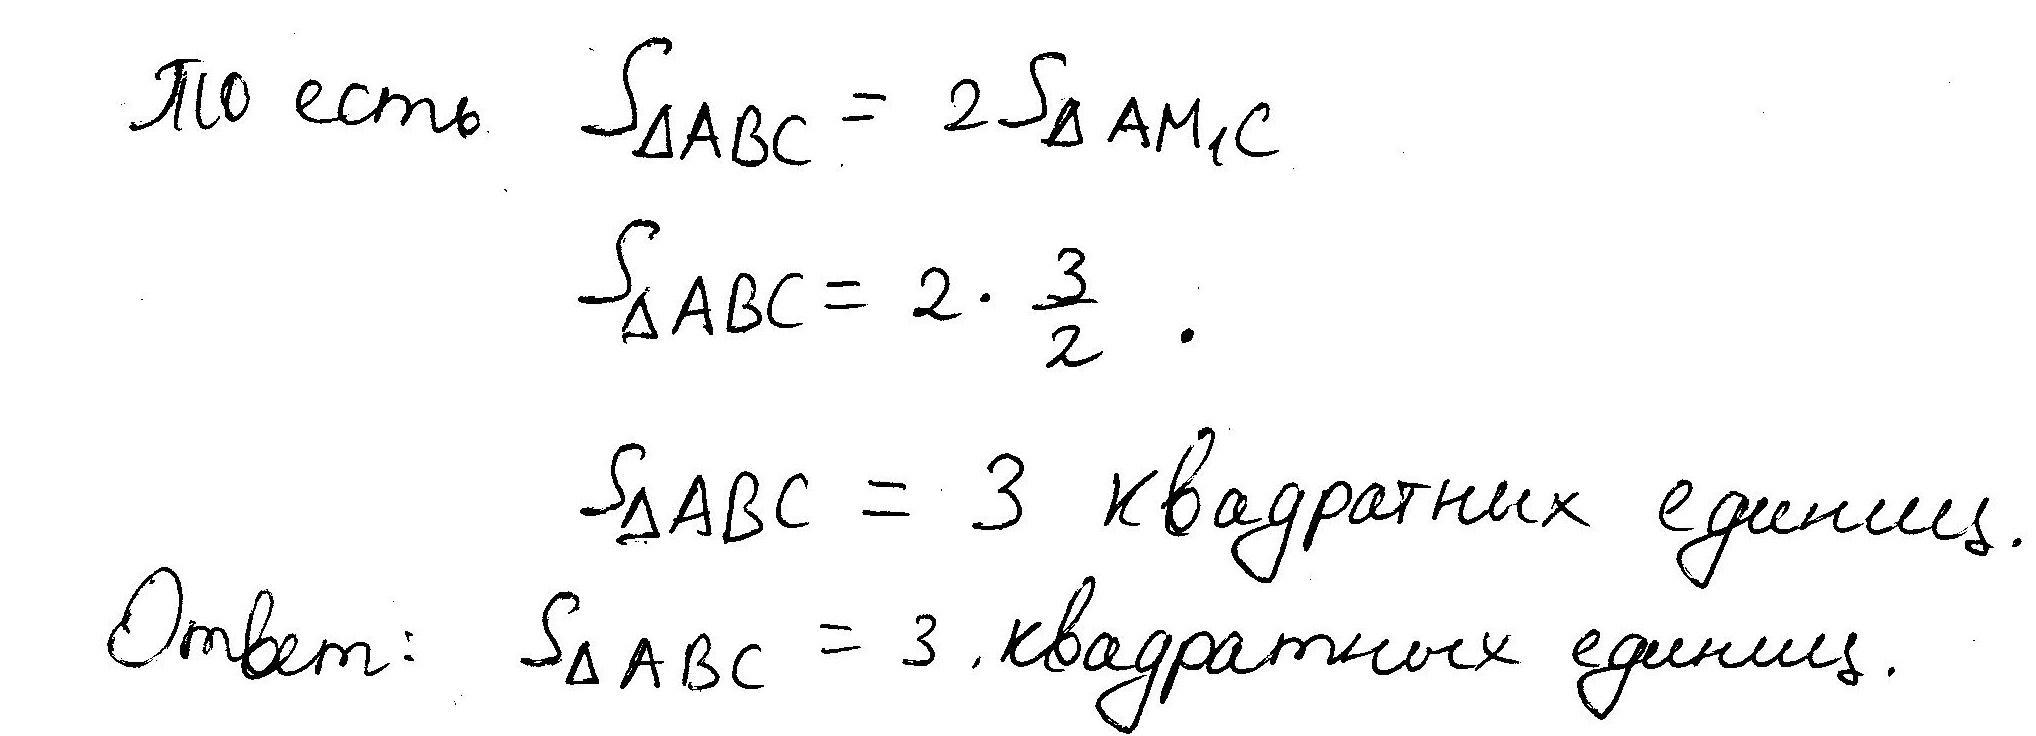 То есть S△ABC = 2S△AM₁C
S△ABC = 2 · 3/2 .
S△ABC = 3 квадратных единиц.
Ответ: S△ABC = 3 квадратных единиц.